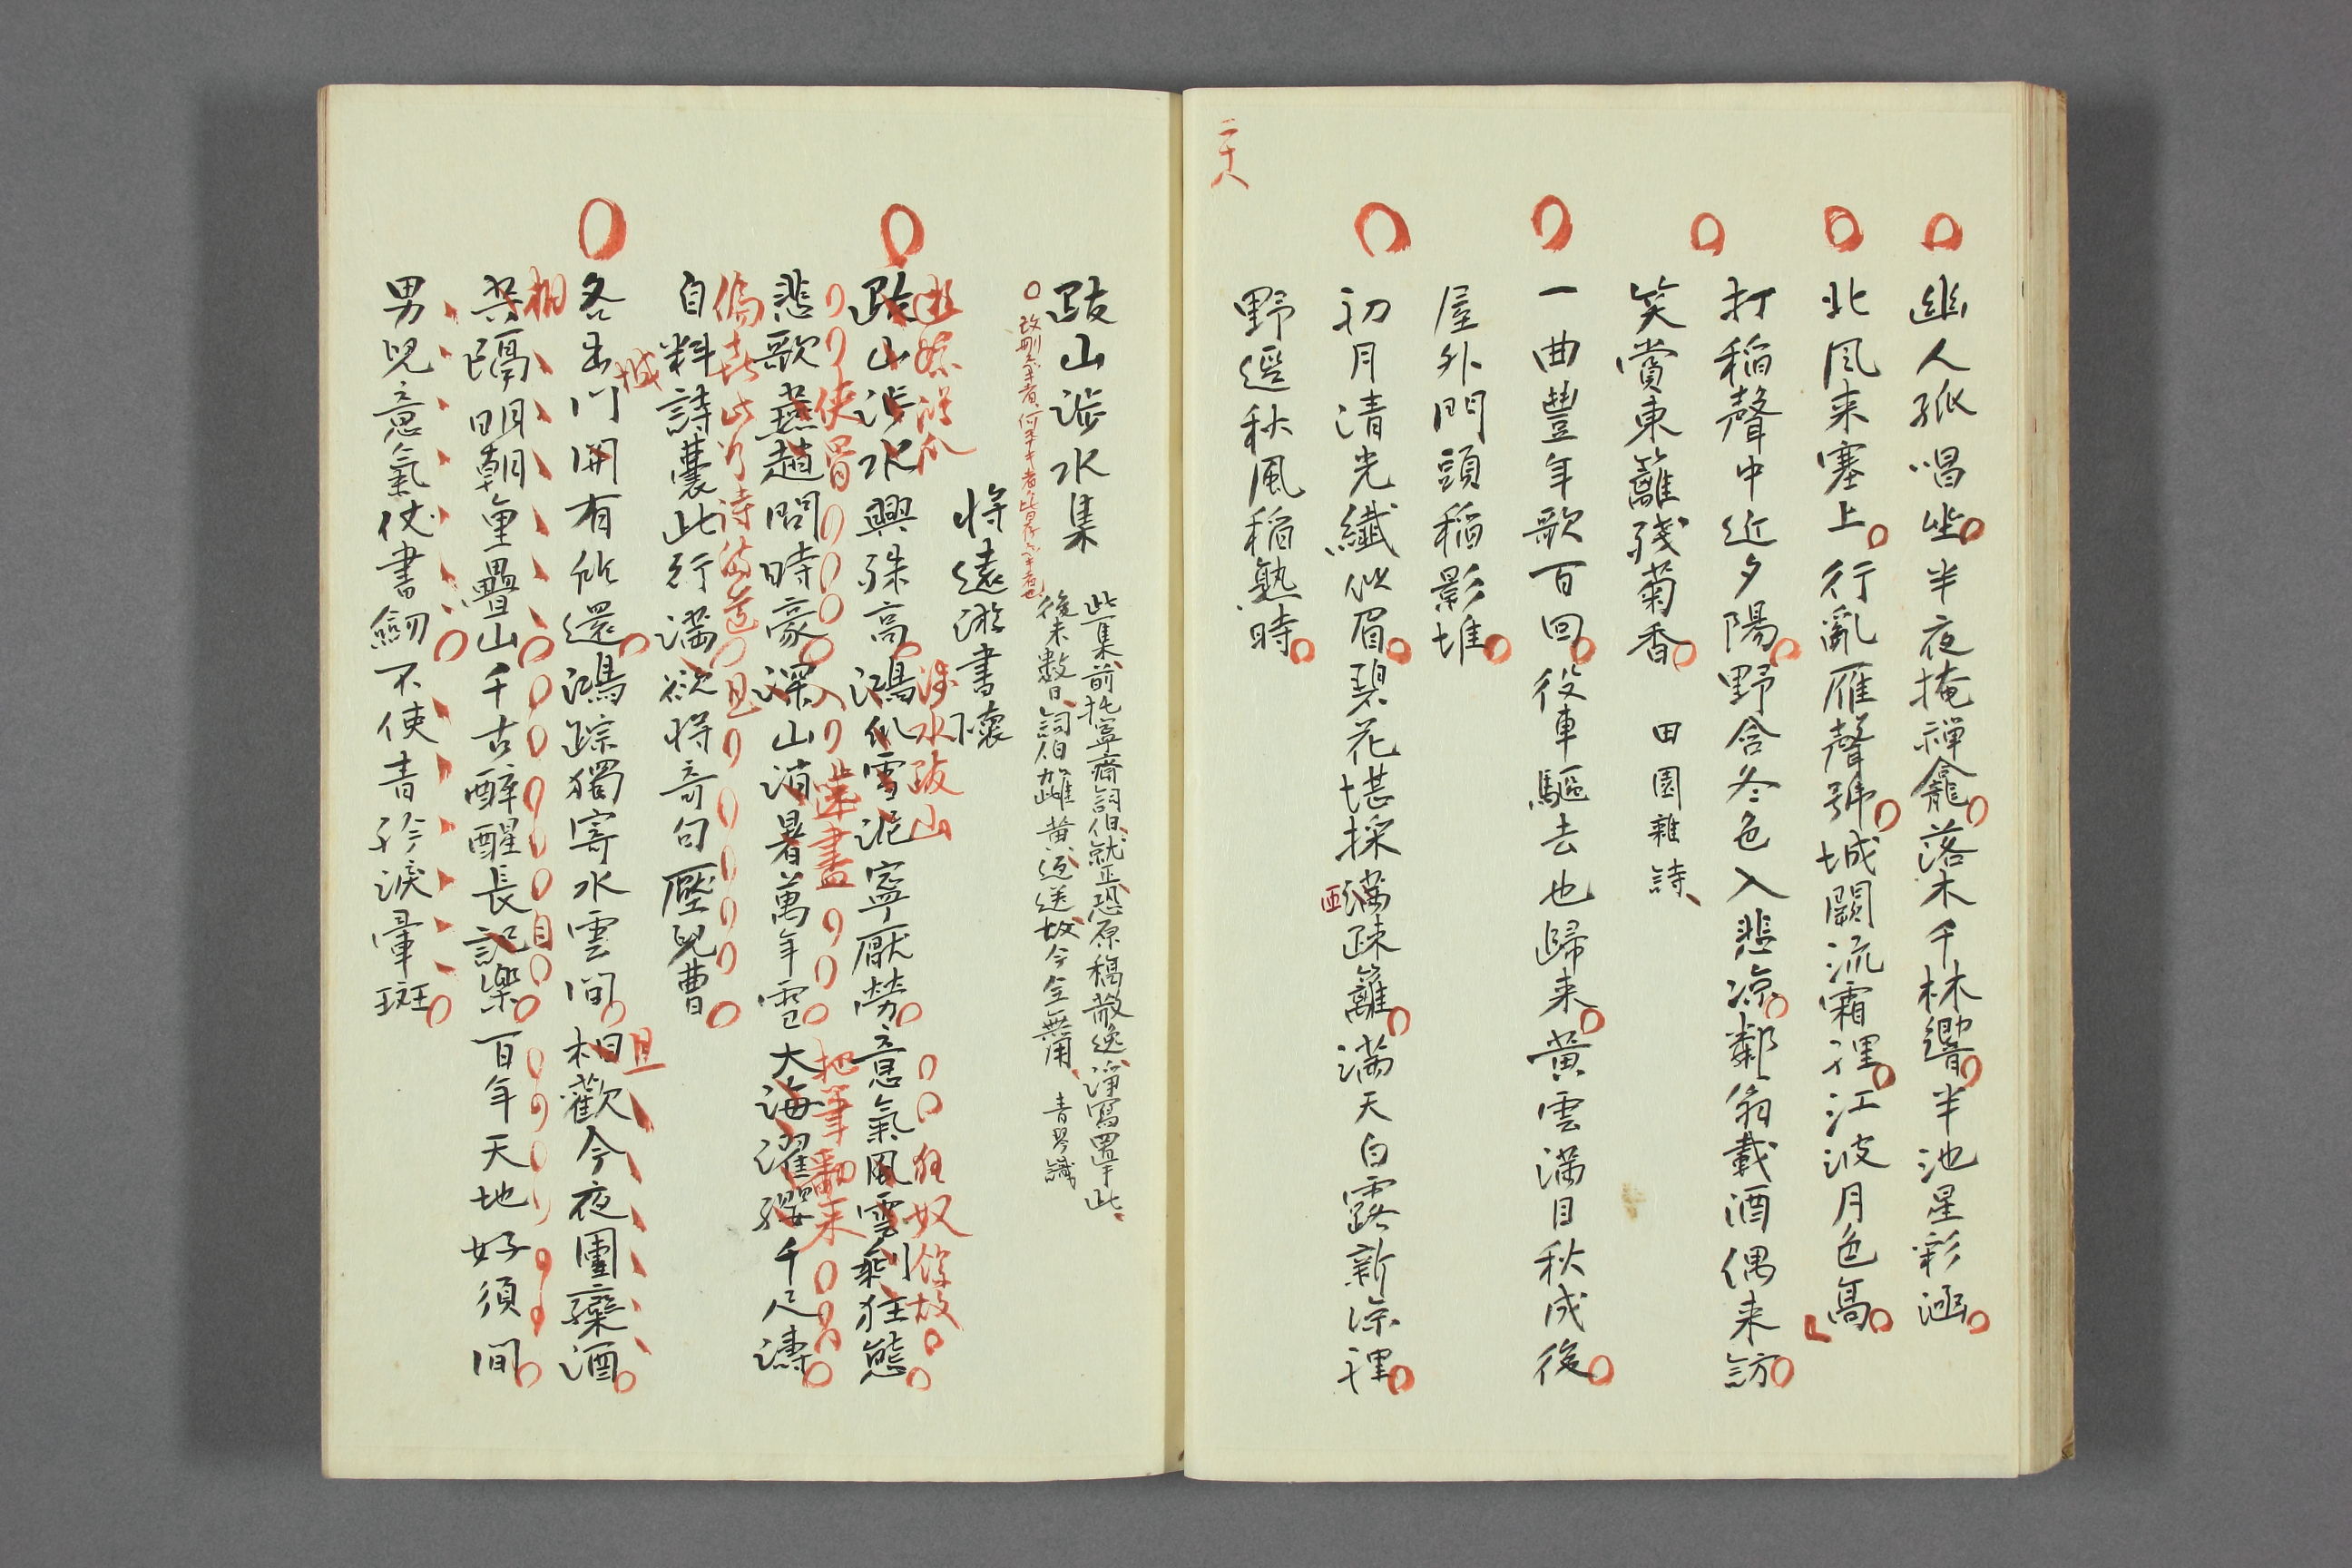 幽人孤唱坐半夜掩禪龕落木千林響半池星彩涵
北风来塞上行亂雁聲號城闕流霜裡江波月色高
打稲聲中近夕陽野含冬色入悲凉鄰翁載酒偶来訪
笑賞東籬残菊香
田園雜詩
一曲豐年歌百回役車驅去也歸来黄雲満目秋成後
屋外門頭稲影堆
初月清光纖似眉碧花堪採満疎籬満天白露新凉裡
西
野逕秋風稲熟時
二十八
跋山渉水集
此集前托寧齋詞伯就正恐原稿散逸淨寫置于此
後未數日詞伯雌黄返送故今全無用 青琴識
将遠游書懷
渉水跋山
狂奴
跋山渉水興殊高鴻爪雪泥寧厭勞意氣風雲剰狂態
使
筆
悲歌燕趙問時豪深山消暑萬年雪大海濯纓千尺濤
且
自料詩囊此行満欲将奇句壓兒曹
城
且
各出門開有所還鴻踪獨寄水雲间相歡今夜團欒酒
相
共隔明朝重疊山千古醉醒長記樂百年天地好須间
男兒意氣仗書劔不使青衫涙暈斑